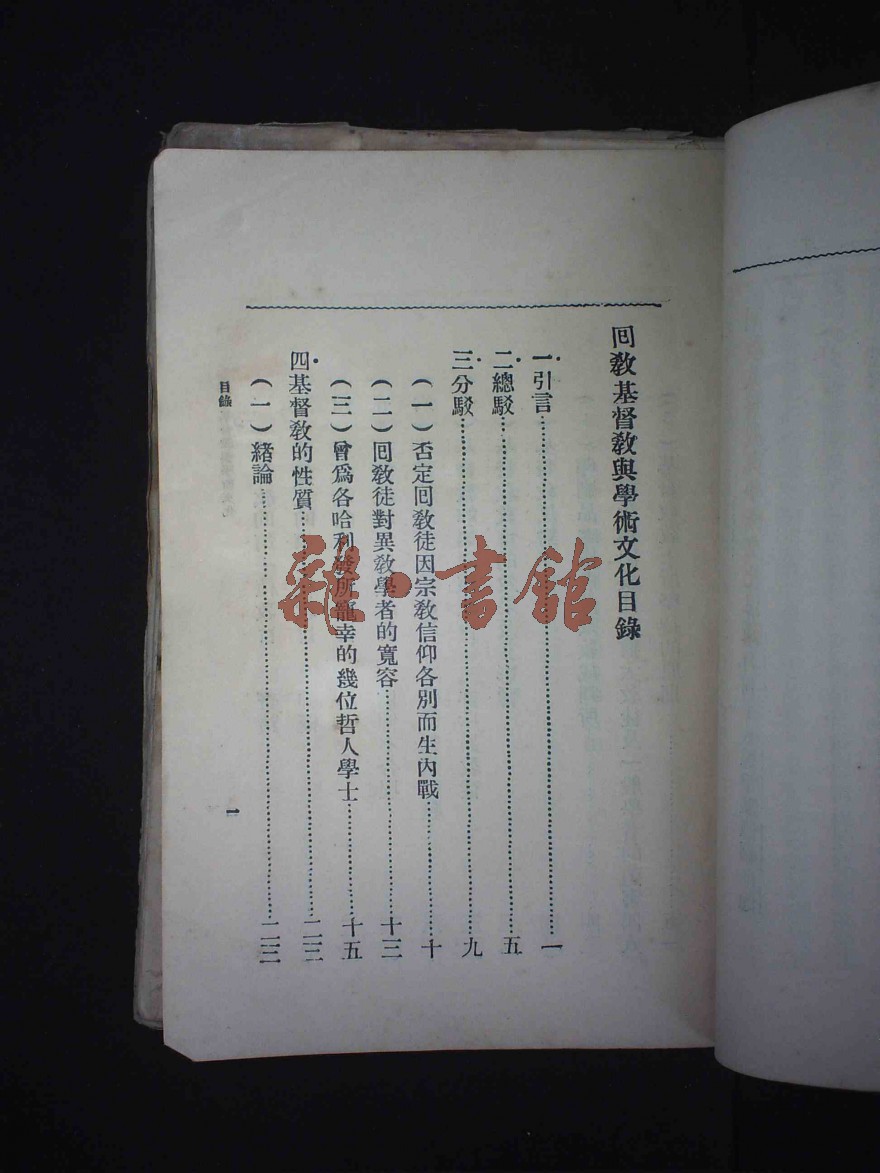 囘敎基督敎與學術文化目錄
一·引言……………………一
二·總駁……………………五
三·分駁……………………九
(一)否定囘敎徒因宗敎信仰各別而生內戰……………………十
(二)囘敎徒對異敎學者的寬容……………………十三
(三)曾爲各哈利發所寵幸的幾位哲人學士……………………十五
四·基督敎的性質……………………二三
(一)緒論……………………二三
目錄
一
雜·書館